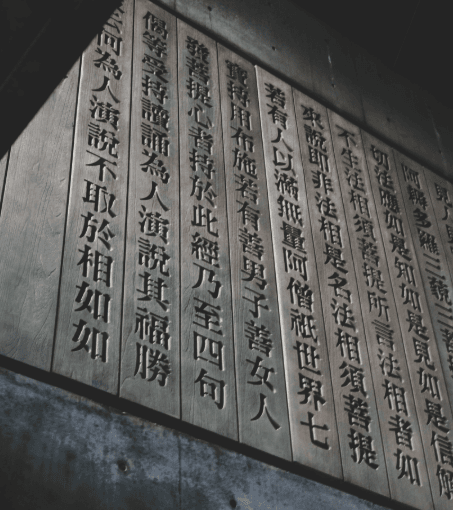 見人見
阿耨多羅三藐三
切法應如是知如是見如是信解
不生法相須菩提所言法相者如
來說即非法相是名法相須菩提
若有人以滿無量阿僧祇世界七
寶持用布施若有善男子善女人
發菩提心者持於此經乃至四句
偈等受持讀誦為人演說其福勝
云何為人演說不取於相如如